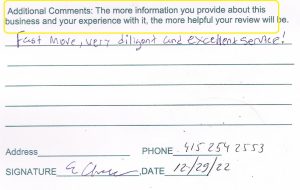 Additional Comments: The more information you provide about this
business and your experience with it, the more helpful your review will be.
Fast move, very diligent and excellent service!
Address PHONE 415 254 2553
SIGNATURE ,DATE 12/29/22